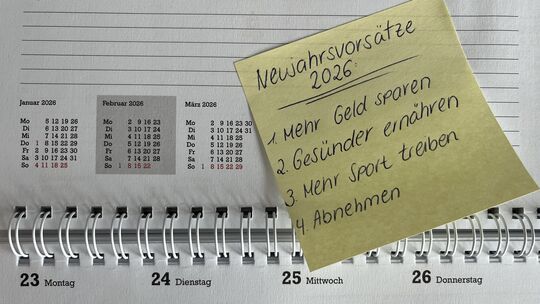 Neujahrsvorsätze
2026:
1. Mehr Geld sparen
2. Gesünder ernähren
3. Mehr Sport treiben
4. Abnehmen
Januar 2026
Mo 5 12 19 26
Di 6 13 20 27
Mi 7 14 21 28
Do 1 8 15 22 29
Fr 2 9 16 23 30
Sa 3 10 17 24 31
So 4 11 18 25
Februar 2026
Mo 2 9 16 23
Di 3 10 17 24
Mi 4 11 18 25
Do 5 12 19 26
Fr 6 13 20 27
Sa 7 14 21 28
So 1 8 15 22
März 2026
Mo 2 9 16 23 30
Di 3 10 17 24 31
Mi 4 11 18 25
Do 5 12 19 26
Fr 6 13 20 27
Sa 7 14 21 28
So 1 8 15 22 29
23 Montag
24 Dienstag
25 Mittwoch
26 Donnerstag